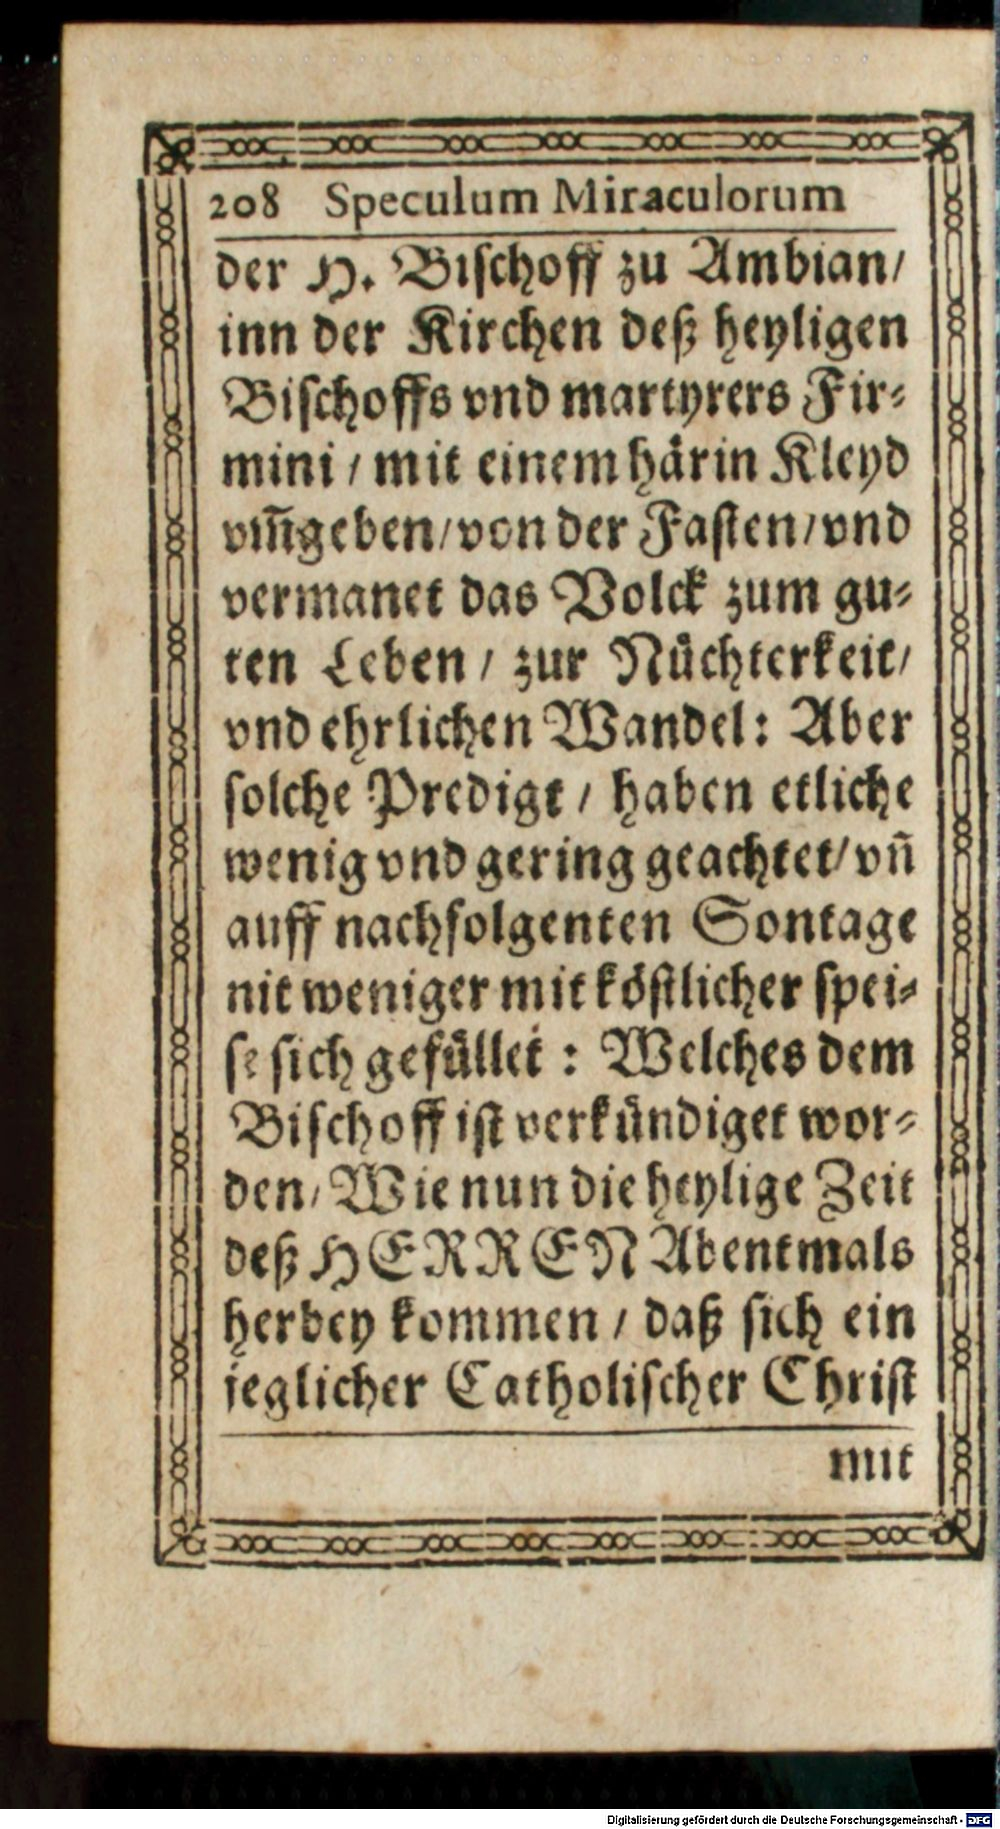 208 Speculum Miraculorum
der H. Bischoff zu Ambian/
inn der Kirchen deß heyligen
Bischoffs vnd martyrers Fir-
mini / mit einem härin Kleyd
vm̃geben/von der Fasten/vnd
vermanet das Volck zum gu-
ten Leben / zur Nüchterkeit/
vnd ehrlichen Wandel: Aber
solche Predigt / haben etliche
wenig vnd gering geachtet/ vñ
auff nachfolgenten Sontage
nit weniger mit köstlicher spei-
se sich gefüllet : Welches dem
Bischoff ist verkündiget wor-
den/ Wie nun die heylige Zeit
deß HERREN Abentmals
herbey kommen / daß sich ein
jeglicher Catholischer Christ
mit
Digitalisierung gefördert durch die Deutsche Forschungsgemeinschaft - DFG